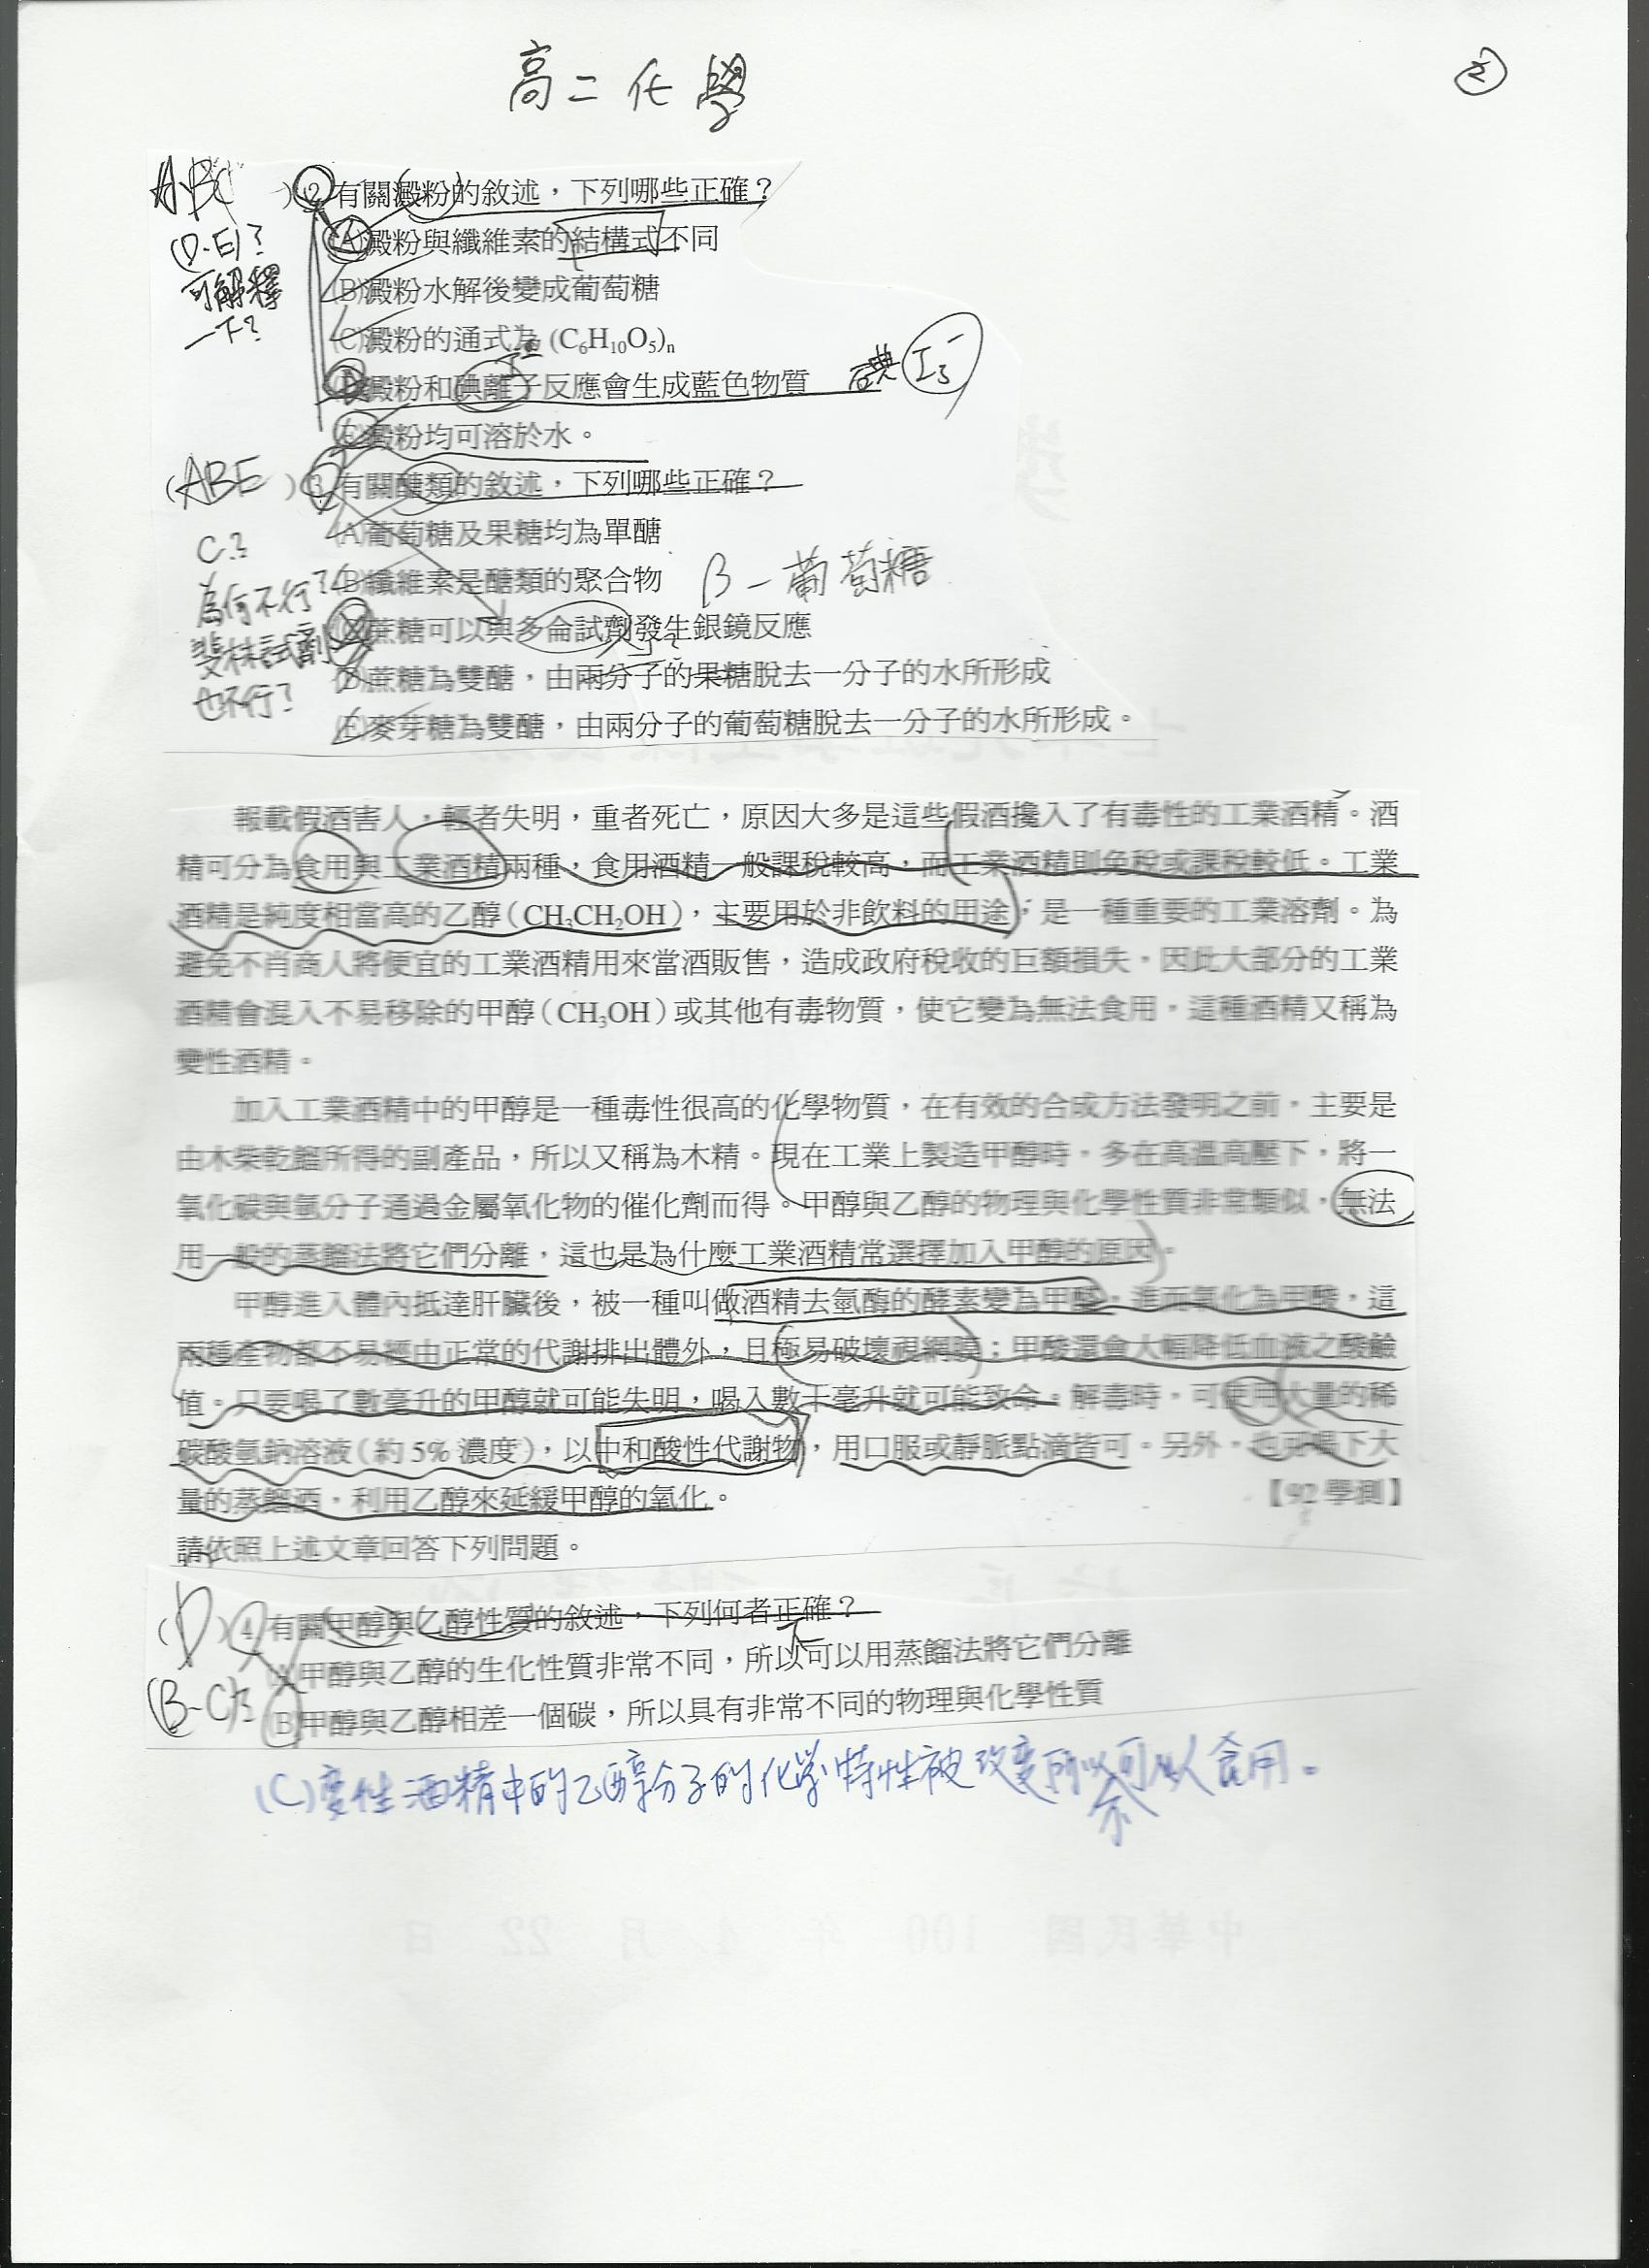 高二化學
2
ABC
)2.有關澱粉的敘述，下列哪些正確？
(D.E)?
可解釋
一下?
(A)澱粉與纖維素的結構式不同
(B)澱粉水解後變成葡萄糖
(C)澱粉的通式為 (C6H10O5)n
(D)澱粉和碘離子反應會生成藍色物質
碘 I3-
(E)澱粉均可溶於水。
(ABE)3.有關醣類的敘述，下列哪些正確？
C.?
為何不行?
斐林試劑
也不行?
(A)葡萄糖及果糖均為單醣
(B)纖維素是醣類的聚合物
β-葡萄糖
(C)蔗糖可以與多侖試劑發生銀鏡反應
(D)蔗糖為雙醣，由兩分子的果糖脫去一分子的水所形成
(E)麥芽糖為雙醣，由兩分子的葡萄糖脫去一分子的水所形成。
報載假酒害人，輕者失明，重者死亡，原因大多是這些假酒攙入了有毒性的工業酒精。酒
精可分為食用與工業酒精兩種，食用酒精一般課稅較高，而工業酒精則免稅或課稅較低。工業
酒精是純度相當高的乙醇（CH3CH2OH），主要用於非飲料的用途，是一種重要的工業溶劑。為
避免不肖商人將便宜的工業酒精用來當酒販售，造成政府稅收的巨額損失，因此大部分的工業
酒精會混入不易移除的甲醇（CH3OH）或其他有毒物質，使它變為無法食用，這種酒精又稱為
變性酒精。
加入工業酒精中的甲醇是一種毒性很高的化學物質，在有效的合成方法發明之前，主要是
由木柴乾餾所得的副產品，所以又稱為木精。現在工業上製造甲醇時，多在高溫高壓下，將一
氧化碳與氫分子通過金屬氧化物的催化劑而得。甲醇與乙醇的物理與化學性質非常類似，無法
用一般的蒸餾法將它們分離，這也是為什麼工業酒精常選擇加入甲醇的原因。
甲醇進入體內抵達肝臟後，被一種叫做酒精去氫酶的酵素變為甲醛，進而氧化為甲酸，這
兩種產物都不易經由正常的代謝排出體外，且極易破壞視網膜；甲酸還會大幅降低血液之酸鹼
值。只要喝了數毫升的甲醇就可能失明，喝入數十毫升就可能致命。解毒時，可使用大量的稀
碳酸氫鈉溶液（約 5% 濃度），以中和酸性代謝物，用口服或靜脈點滴皆可。另外，也可喝下大
量的蒸餾酒，利用乙醇來延緩甲醇的氧化。
【92 學測】
請依照上述文章回答下列問題。
(D)4.有關甲醇與乙醇性質的敘述，下列何者正確？
(B-C)?
(A)甲醇與乙醇的生化性質非常不同，所以可以用蒸餾法將它們分離
(B)甲醇與乙醇相差一個碳，所以具有非常不同的物理與化學性質
(C)變性酒精中的乙醇分子的化學特性被改變所以不可以食用。